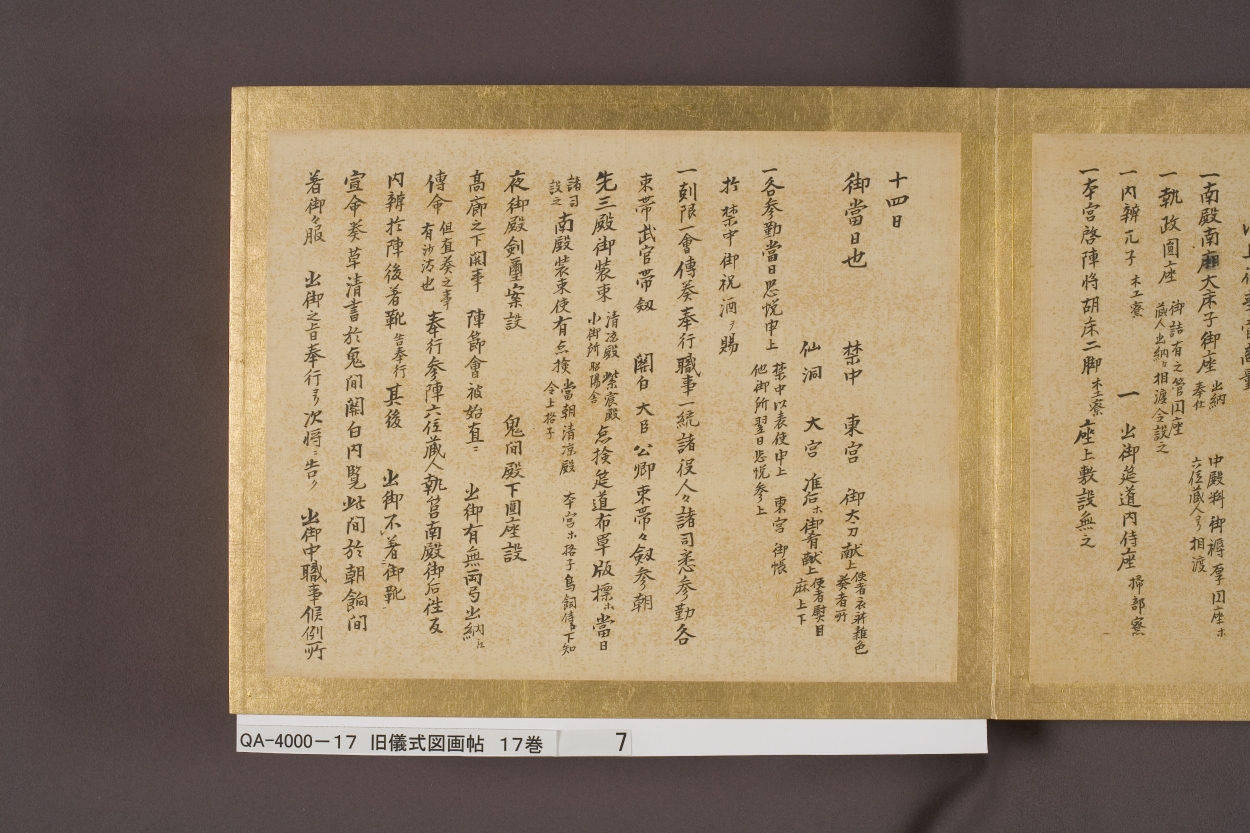 一南殿南廂大床子御座 出納奉仕 中殿料御褥厚円座ホ六位蔵人ヨリ相渡
一執政圓座 御詰有之管円座蔵人出納〻相渡令設之
一内辨兀子 木工寮 一 出御筵道内侍座 掃部寮
一本宮啓陣将胡床二脚 木工寮 座上敷設無之
十四日
御當日也 禁中 東宮 御太刀献上 使者衣祈雑色奏者所
仙洞 大宮 准后ホ御肴献上 使者慰目麻上下
一各参勤當日恐悦申上 禁中以表使申上 東宮 御帳他御所翌日恐悦参上
於 禁中御祝酒ヲ賜
一刻限一會傳奏奉行職事一統諸役人々諸司悉参勤各
束帯武官帯劔 関白 大臣 公卿束帯々劔参朝
先三殿御装束 清凉殿 紫宸殿小御所 昭陽舎 点検筵道布單版標ホ當日
諸司設之 南殿装束使有点検 當朝清凉殿 本宮ホ格子鳥飼侍下知令上格子
夜御殿剣璽案設 鬼間殿下圓座設
高廊之下関事 陣節會被始直ニ 出御有無両弓出納江
傳命 但直奏之事有沙汰也 奉行参陣六位蔵人執筥南殿御后徃反
内辨於陣後着靴 告奉行 其後 出御不着御靴
宣命奏草清書於鬼間関白内覧此間於朝餉間
着御々服 出御之旨奉行ヨリ次将ニ告ク 出御中職事候例所
QA-4000-17 旧儀式図画帖 17巻 7